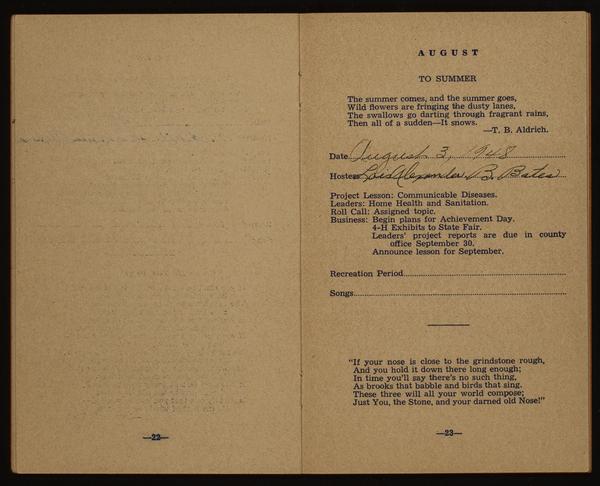 —22—
AUGUST
TO SUMMER
The summer comes, and the summer goes,
Wild flowers are fringing the dusty lanes,
The swallows go darting through fragrant rains,
Then all of a sudden—It snows.
—T. B. Aldrich.
Date August 3, 1948
Hostess B. Bates
Project Lesson: Communicable Diseases.
Leaders: Home Health and Sanitation.
Roll Call: Assigned topic.
Business: Begin plans for Achievement Day.
4-H Exhibits to State Fair.
Leaders' project reports are due in county
office September 30.
Announce lesson for September.
Recreation Period
Songs
"If your nose is close to the grindstone rough,
And you hold it down there long enough;
In time you'll say there's no such thing,
As brooks that babble and birds that sing.
These three will all your world compose;
Just You, the Stone, and your darned old Nose!"
—23—